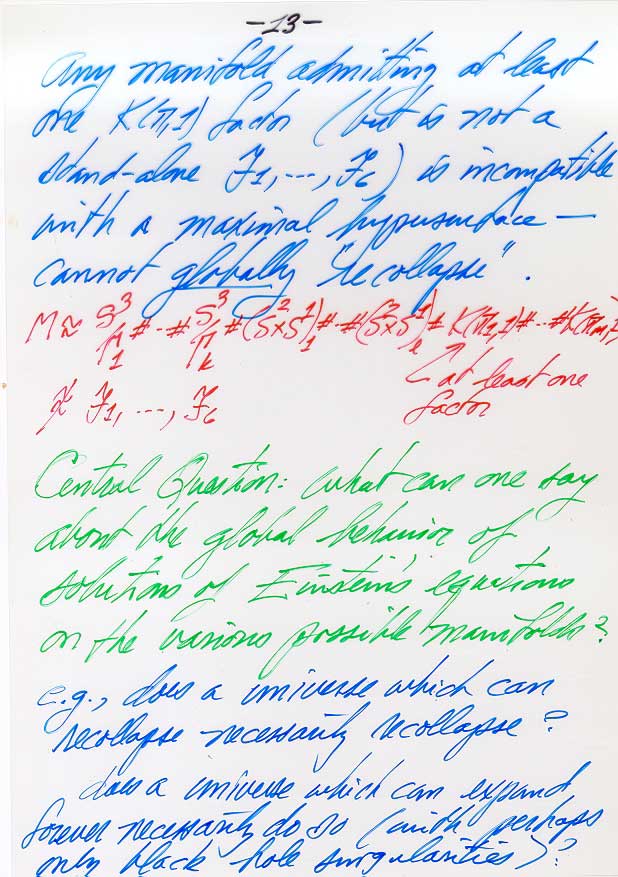 -13-
Any manifold admitting at least
one K(π,1) factor (but is not a
stand-alone F₁, ---, F₆) is incompatible
with a maximal hypersurface —
cannot globally "recollapse".
M ≈ S³/Γ₁ # -- # S³/Γₖ # (S²×S¹)₁ # -- # (S²×S¹)ₗ # K(π₁,1) # -- # K(πₘ,1)
↖ at least one
factor
≉ F₁, ---, F₆
Central Question: what can one say
about the global behavior of
solutions of Einstein's equations
on the various possible manifolds?
e.g., does a universe which can
recollapse necessarily recollapse?
does a universe which can expand
forever necessarily do so (with perhaps
only black hole singularities)?